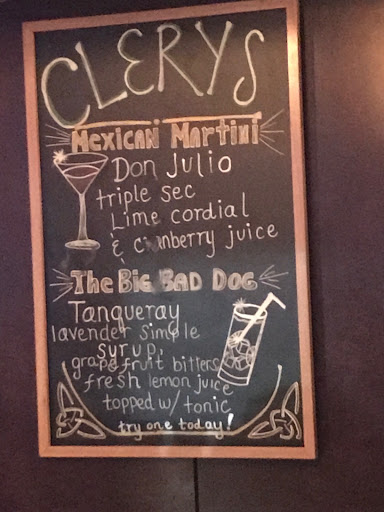 CLERYS
Mexican Martini
Don Julio
triple sec
Lime cordial
& cranberry juice
The Big Bad Dog
Tanqueray
lavender simple
syrup,
grapefruit bitters
fresh lemon juice
topped w/ tonic
try one today!